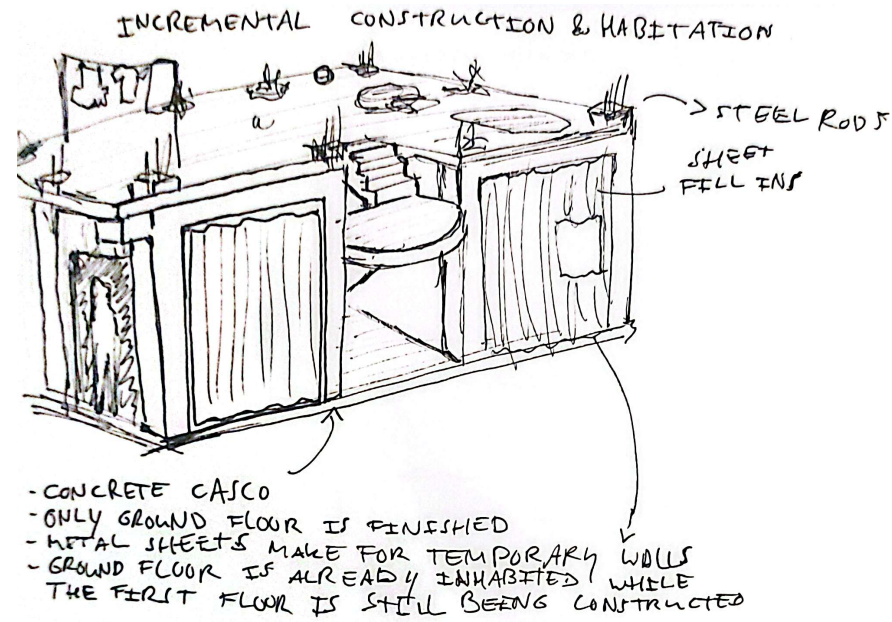 INCREMENTAL CONSTRUCTION & HABITATION
STEEL RODS
SHEET
FILL INS
- CONCRETE CASCO
- ONLY GROUND FLOOR IS FINISHED
- METAL SHEETS MAKE FOR TEMPORARY WALLS
- GROUND FLOOR IS ALREADY INHABITED WHILE
THE FIRST FLOOR IS STILL BEING CONSTRUCTED